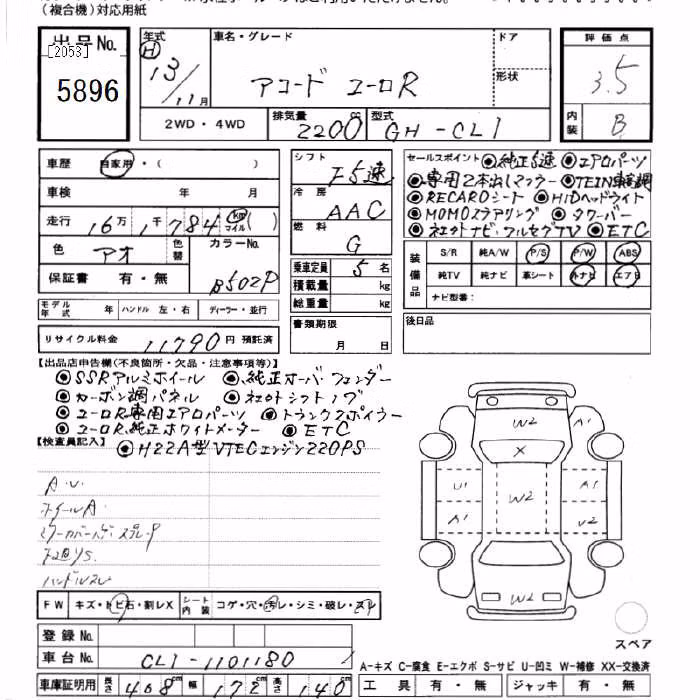 (複合機)対応用紙
出品No.
[2053]
5896
年式
H
13/11月
車名・グレード
アコード ユーロR
ドア
形状
評価点
3.5
内装
B
2WD・4WD
排気量
2200
cc
型式
GH-CL1
車歴
自家用・( )
車検 年 月
走行
16万1千784
km
マイル( )
色
アオ
色替
カラーNo.
B502P
保証書 有・無
シフト
F5速
冷房
AAC
燃料
G
乗車定員 5名
積載量 kg
総重量 kg
書類期限
月 日
セールスポイント
純正5速 エアロパーツ
専用2本出しマフラー TEIN車高調
RECAROシート HIDヘッドライト
MOMOステアリング タワーバー
社外ナビ・フルセグTV ETC
装備品
S/R 純A/W P/S P/W ABS
純TV 純ナビ 革シート 外ナビ エアB
ナビ型番:
後日品
モデル年式 年 ハンドル 左・右 ディーラー・並行
リサイクル料金 11790円 預託済
【出品店申告欄(不良箇所・欠品・注意事項等)】
SSRアルミホイール 純正オーバーフェンダー
カーボン調パネル 社外シフトノブ
ユーロR専用エアロパーツ トランクスポイラー
ユーロR純正ホワイトメーター ETC
H22A型VTECエンジン220PS
【検査員記入】
A.U.
ホイールA
ハンドルスレ
FW キズ・トビ石・割レX
シート内装 コゲ・穴・汚レ・シミ・破レ・スレ
登録No.
車台No. CL1-1101180
車庫証明用 長さ 468cm 幅 172cm 高さ 140cm
W2
A1
X
U1
W2
A1
A1
U2
W2
スペア
A-キズ C-腐食 E-エクボ S-サビ U-凹ミ W-補修 XX-交換済
工具 有・無 ジャッキ 有・無